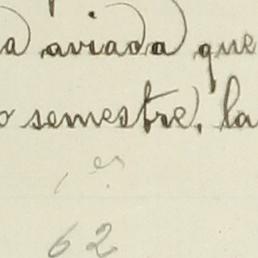 a aviada que
o semestre, la
1 er
62